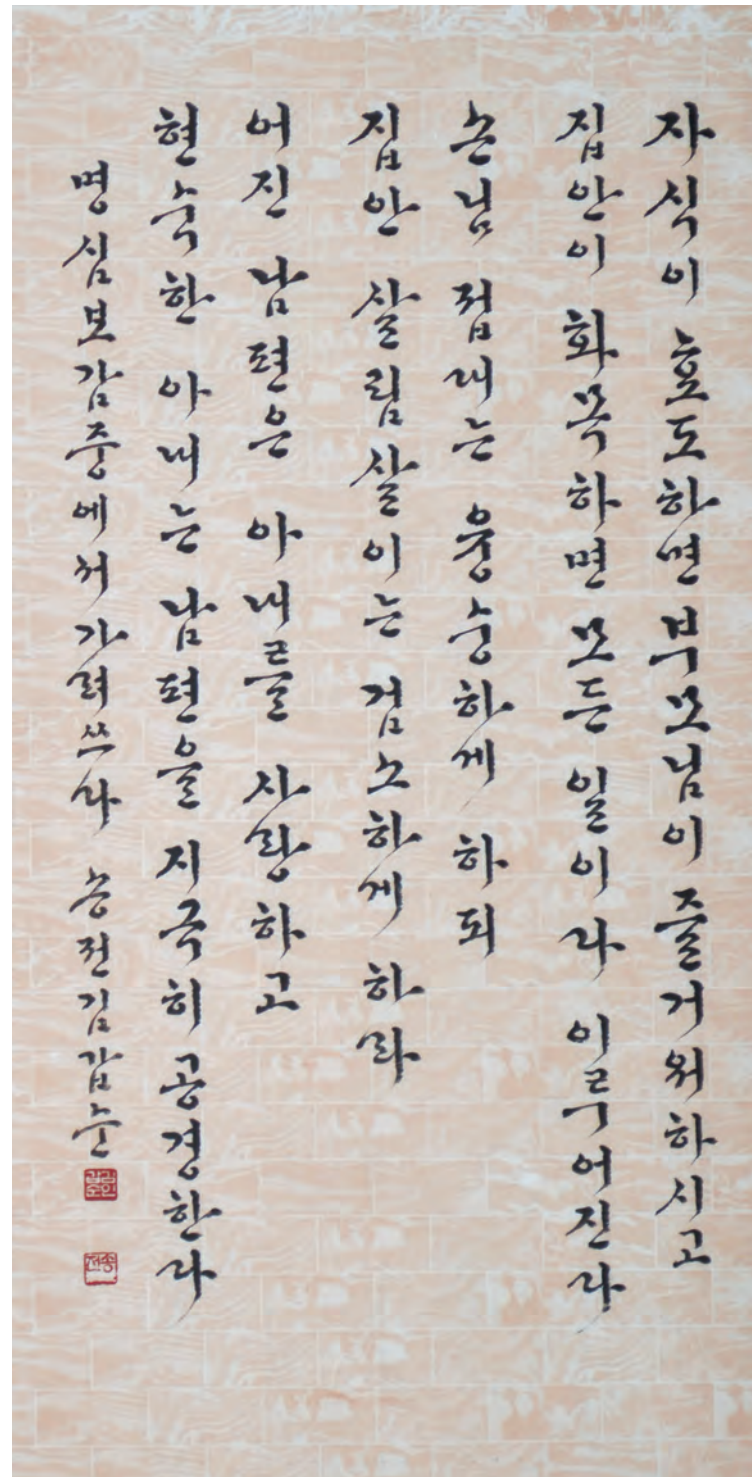 자식이 효도하면 부모님이 즐거워하시고
집안이 화목하면 모든 일이 다 이루어진다
손님 접대는 융숭하게 하되
집안 살림살이는 검소하게 하라
어진 남편은 아내를 사랑하고
현숙한 아내는 남편을 지극히 공경한다
명심보감중에서 가려쓰다 송전 김갑순
송전